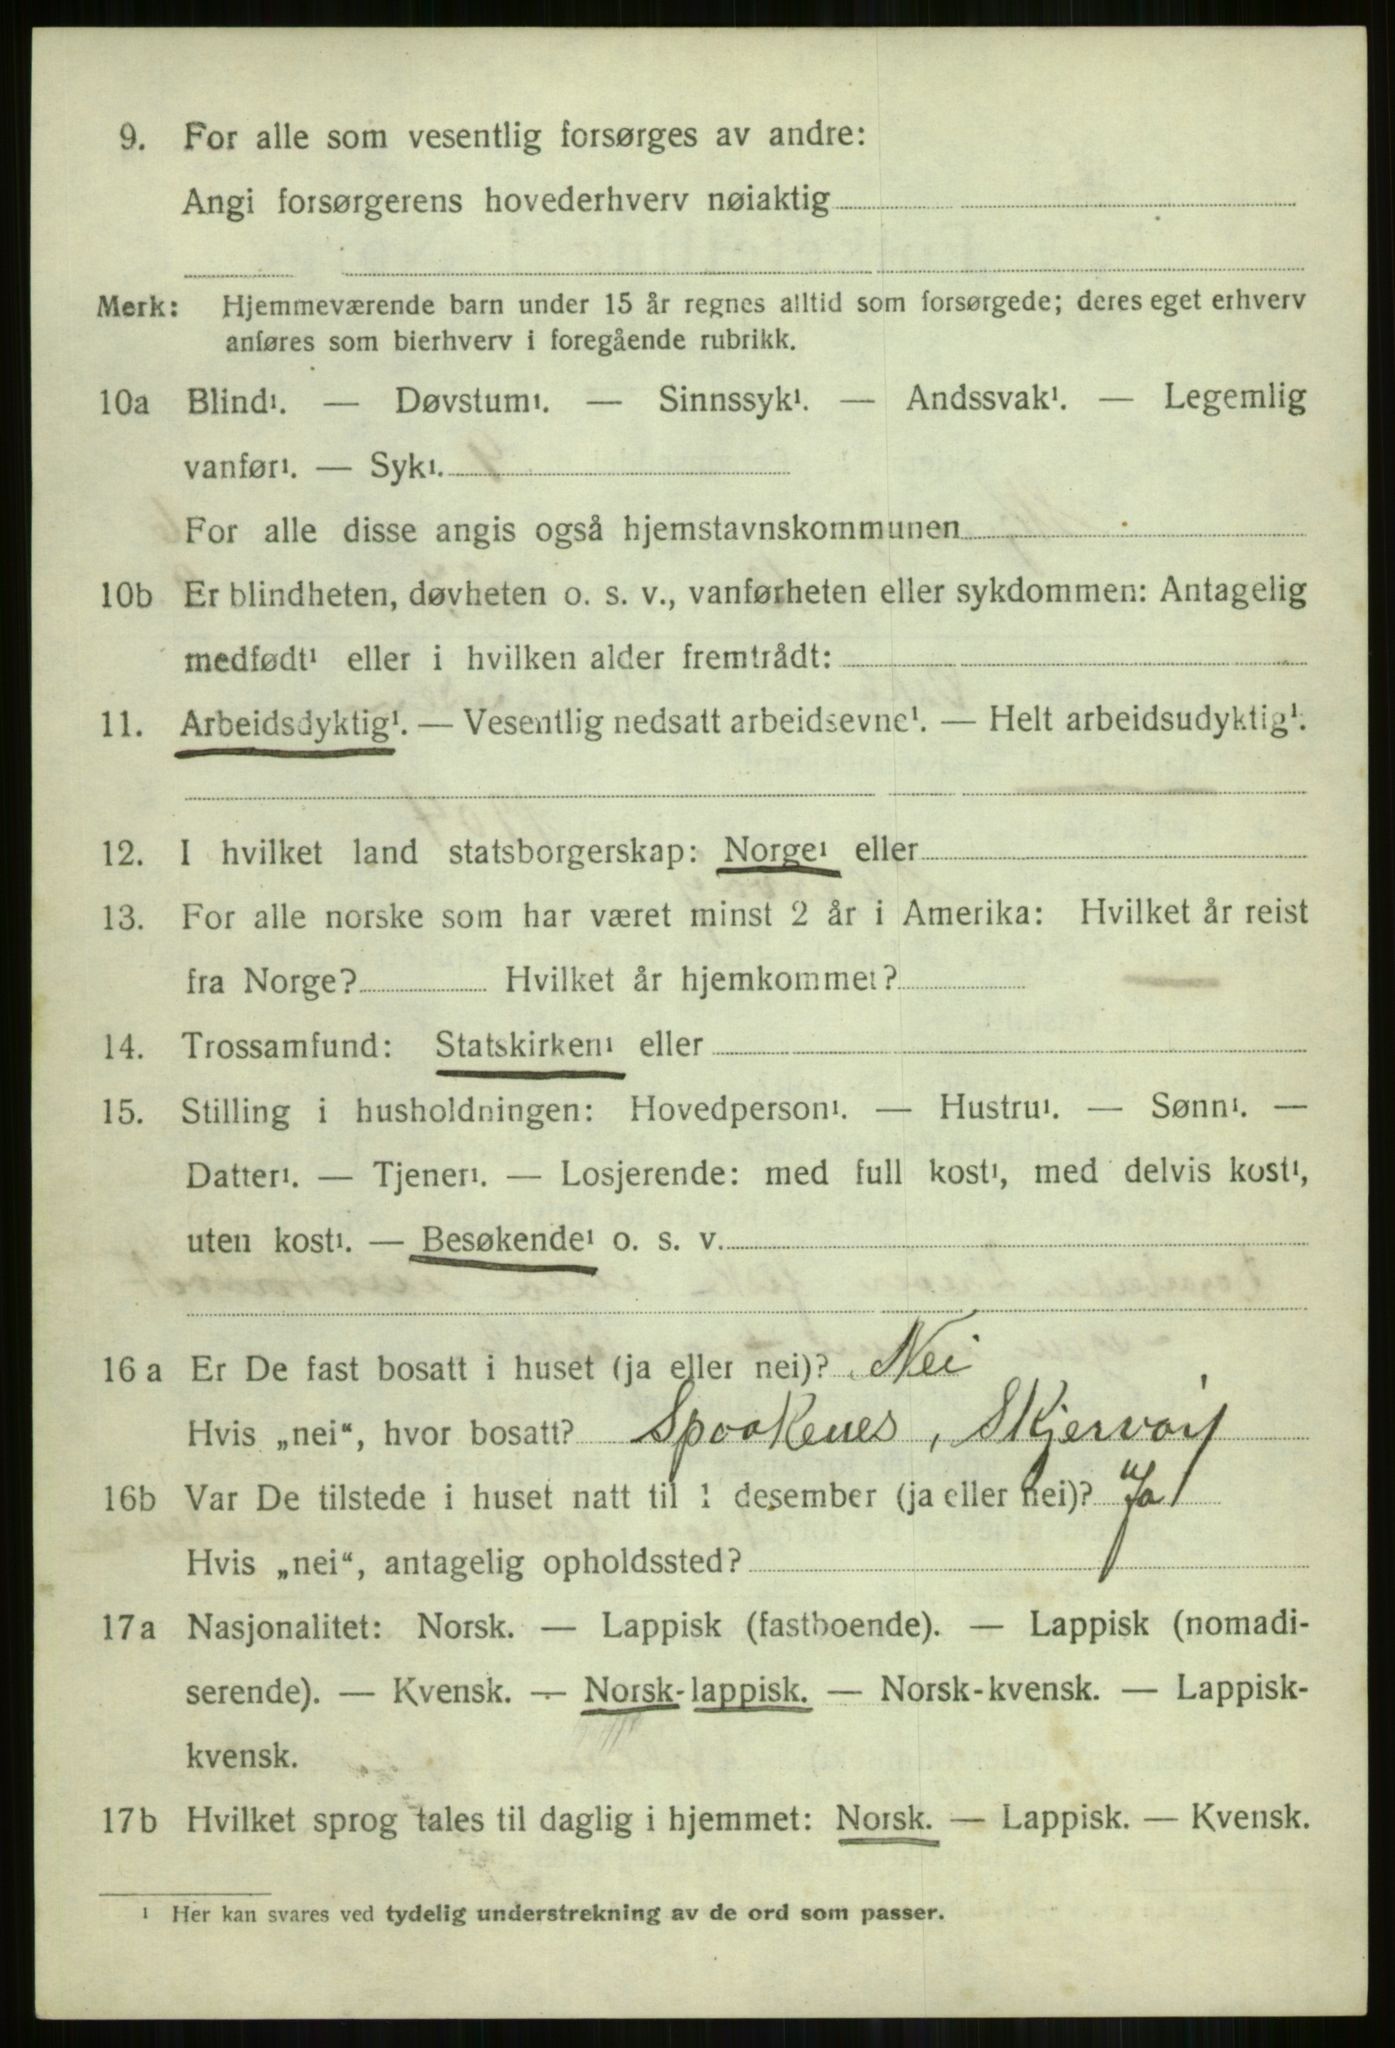 9. For alle som vesentlig forsørges av andre:
Angi forsørgerens hovederhverv nøiaktig
Merk: Hjemmeværende barn under 15 år regnes alltid som forsørgede; deres eget erhverv
anføres som bierhverv i foregående rubrikk.
10a Blind¹. — Døvstum¹. — Sinnssyk¹. — Andssvak¹. — Legemlig
vanfør¹. — Syk¹.
For alle disse angis også hjemstavnskommunen
10b Er blindheten, døvheten o. s. v., vanførheten eller sykdommen: Antagelig
medfødt¹ eller i hvilken alder fremtrådt:
11. Arbeidsdyktig¹. — Vesentlig nedsatt arbeidsevne¹. — Helt arbeidsudyktig¹.
12. I hvilket land statsborgerskap: Norge¹ eller
13. For alle norske som har været minst 2 år i Amerika: Hvilket år reist
fra Norge? Hvilket år hjemkommet?
14. Trossamfund: Statskirken¹ eller
15. Stilling i husholdningen: Hovedperson¹. — Hustru¹. — Sønn¹. —
Datter¹. — Tjener¹. — Losjerende: med full kost¹, med delvis kost¹,
uten kost¹. — Besøkende¹ o. s. v.
16 a Er De fast bosatt i huset (ja eller nei)? Nei
Hvis „nei“, hvor bosatt? Spaakenes, Skjervøy
16b Var De tilstede i huset natt til 1 desember (ja eller nei)? Ja
Hvis „nei“, antagelig opholdssted?
17a Nasjonalitet: Norsk. — Lappisk (fastboende). — Lappisk (nomadi-
serende). — Kvensk. — Norsk-lappisk. — Norsk-kvensk. — Lappisk-
kvensk.
17b Hvilket sprog tales til daglig i hjemmet: Norsk. — Lappisk. — Kvensk.
¹ Her kan svares ved tydelig understrekning av de ord som passer.